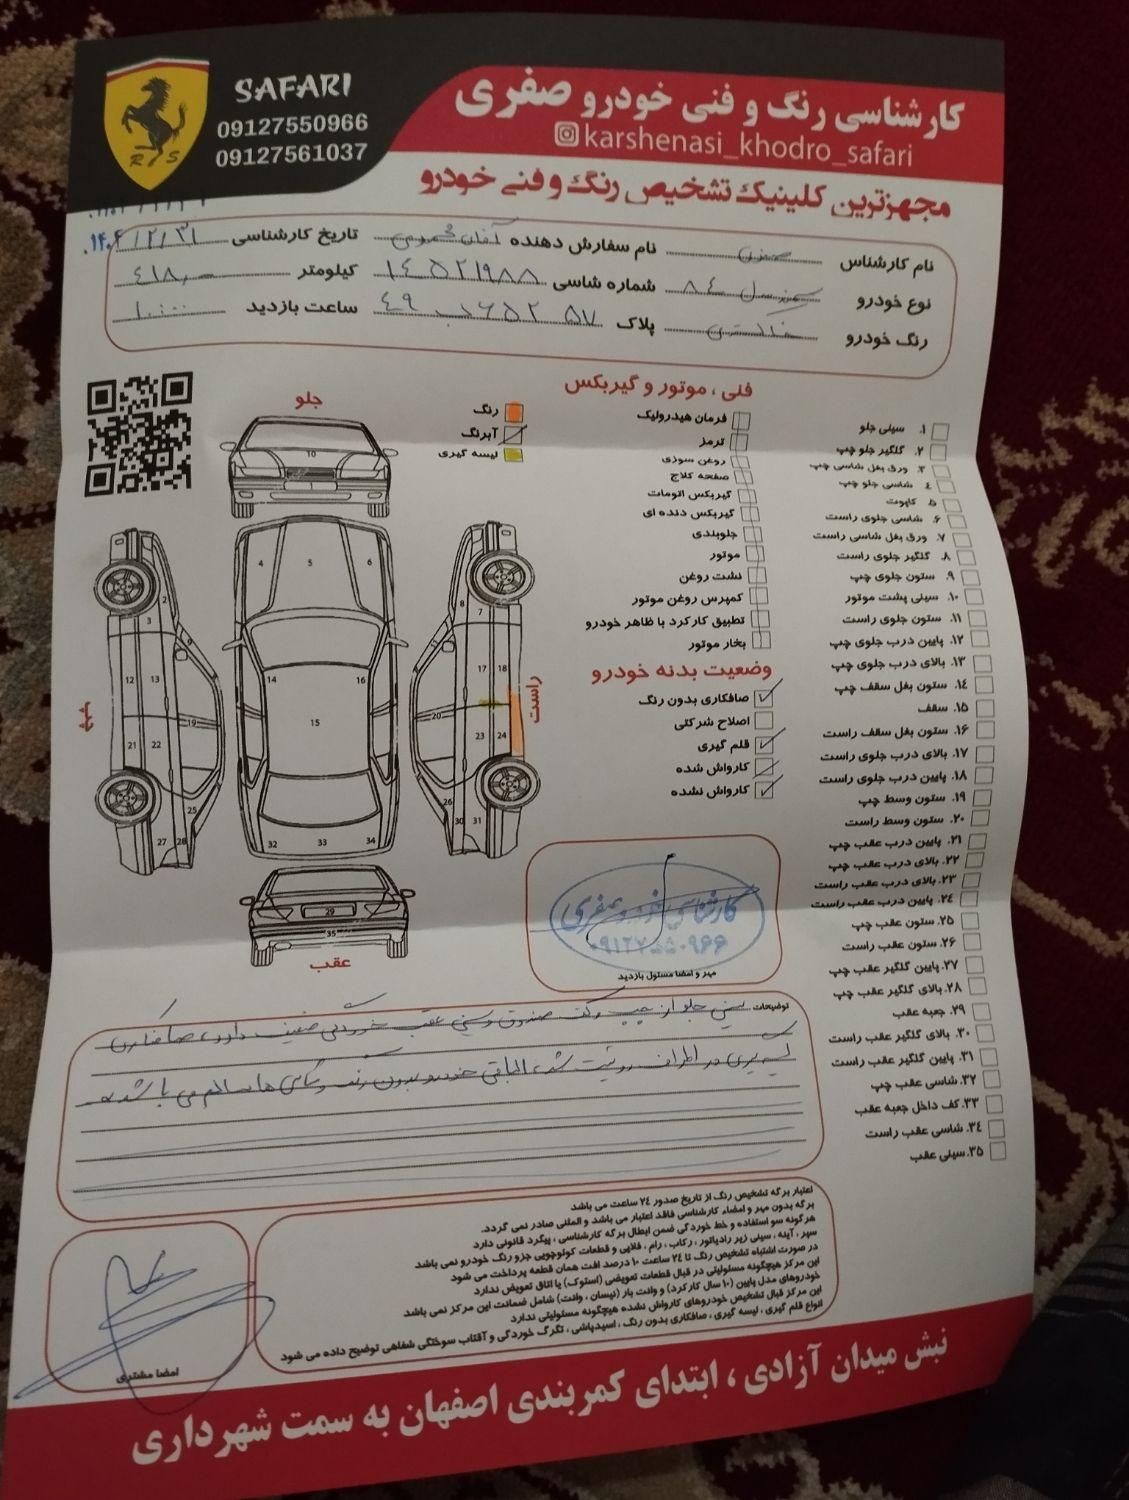 SAFARI
09127550966
09127561037
R S
کارشناسی رنگ و فنی خودرو صفری
karshenasi_khodro_safari
مجهزترین کلینیک تشخیص رنگ و فنی خودرو
نام کارشناس صفری نام سفارش دهنده آقای تاریخ کارشناسی ۱۴۰۴/۲/۳۱
نوع خودرو سمند سال ۸۴ شماره شاسی ۱۴۵۲۱۹۸۸ کیلومتر ۴۱۸۰۰۰
رنگ خودرو خاکستری پلاک ساعت بازدید
فنی ، موتور و گیربکس
فرمان هیدرولیک
ترمز
روغن سوزی
صفحه کلاج
گیربکس اتومات
گیربکس دنده ای
جلوبندی
موتور
نشت روغن
کمپرس روغن موتور
تطبیق کارکرد با ظاهر خودرو
بخار موتور
وضعیت بدنه خودرو
صافکاری بدون رنگ
اصلاح شرکتی
قلم گیری
کارواش شده
کارواش نشده
۱. سینی جلو
۲. گلگیر جلو چپ
۳. ورق بغل شاسی چپ
۴. شاسی جلو چپ
۵. کاپوت
۶. شاسی جلوی راست
۷. ورق بغل شاسی راست
۸. گلگیر جلوی راست
۹. ستون جلوی چپ
۱۰. سینی پشت موتور
۱۱. ستون جلوی راست
۱۲. پایین درب جلوی چپ
۱۳. بالای درب جلوی چپ
۱۴. ستون بغل سقف چپ
۱۵. سقف
۱۶. ستون بغل سقف راست
۱۷. بالای درب جلوی راست
۱۸. پایین درب جلوی راست
۱۹. ستون وسط چپ
۲۰. ستون وسط راست
۲۱. پایین درب عقب چپ
۲۲. بالای درب عقب چپ
۲۳. بالای درب عقب راست
۲۴. پایین درب عقب راست
۲۵. ستون عقب چپ
۲۶. ستون عقب راست
۲۷. پایین گلگیر عقب چپ
۲۸. بالای گلگیر عقب چپ
۲۹. جعبه عقب
۳۰. بالای گلگیر عقب راست
۳۱. پایین گلگیر عقب راست
۳۲. شاسی عقب چپ
۳۳. کف داخل جعبه عقب
۳۴. شاسی عقب راست
۳۵. سینی عقب
رنگ
آبرنگ
لیسه گیری
جلو
10
4 5 6
2 3 9
8 7
12 13
14 16
17 18
19 15 20
21 22
23 24
25 26
27 28
30 31
32 33 34
29
35
چپ
راست
عقب
کارشناسی خودرو صفری
۰۹۱۲۷۵۵۰۹۶۶
مهر و امضا مسئول بازدید
توضیحات: سینی جلو از چپ و کف صندوق و سینی عقب خوردگی ضعیف دارد، صافکاری
لیسه گیری در اطراف رویت شد، الباقی خودرو بدون رنگ و شاسی ها سالم می باشد
اعتبار برگه تشخیص رنگ از تاریخ صدور ۲۴ ساعت می باشد
برگه بدون مهر و امضاء کارشناسی فاقد اعتبار می باشد و المثنی صادر نمی گردد.
هرگونه سو استفاده و خط خوردگی ضمن ابطال برگه کارشناسی ، پیگرد قانونی دارد
سپر ، آینه ، سینی زیر رادیاتور ، رکاب ، رام ، قلاپی و قطعات کوئوچویی جزو رنگ خودرو نمی باشد
در صورت اشتباه تشخیص رنگ تا ۲۴ ساعت ۱۰ درصد افت همان قطعه پرداخت می شود
این مرکز هیچگونه مسئولیتی در قبال قطعات تعویضی (استوک) یا اتاق تعویض ندارد
خودروهای مدل پایین (۱۰ سال کارکرد) و وانت بار (نیسان ، وانت) شامل ضمانت این مرکز نمی باشد
این مرکز قبال تشخیص خودروهای کارواش نشده هیچگونه مسئولیتی ندارد
انواع قلم گیری ، لیسه گیری ، صافکاری بدون رنگ ، اسیدپاشی ، تگرگ خوردگی و آفتاب سوختگی شفاهی توضیح داده می شود
امضا مشتری
نبش میدان آزادی ، ابتدای کمربندی اصفهان به سمت شهرداری